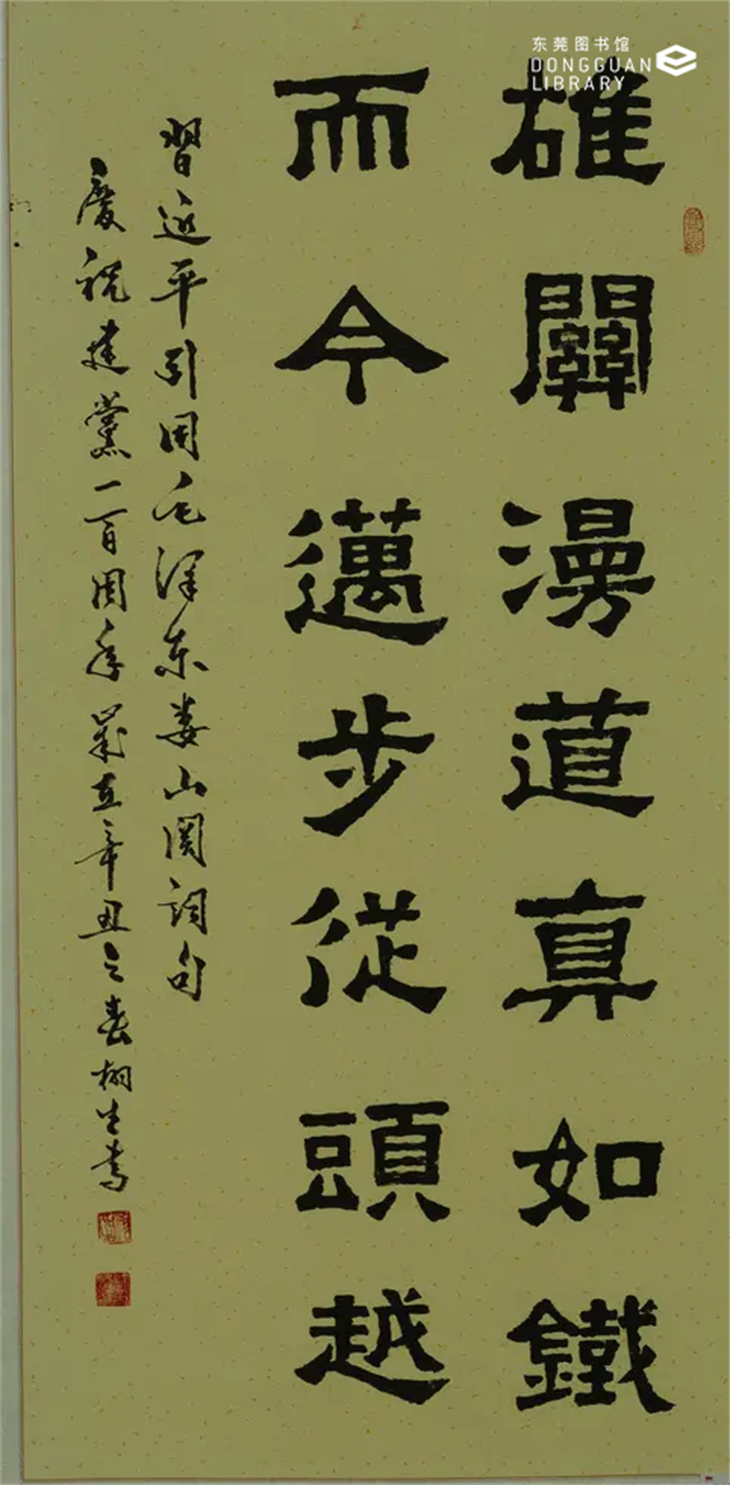 东莞图书馆
DONGGUAN
LIBRARY
雄關漫道真如鐵
而今邁步從頭越
習近平引用毛泽东娄山関詞句
慶祝建黨一百周年歲在辛丑之春栩生書